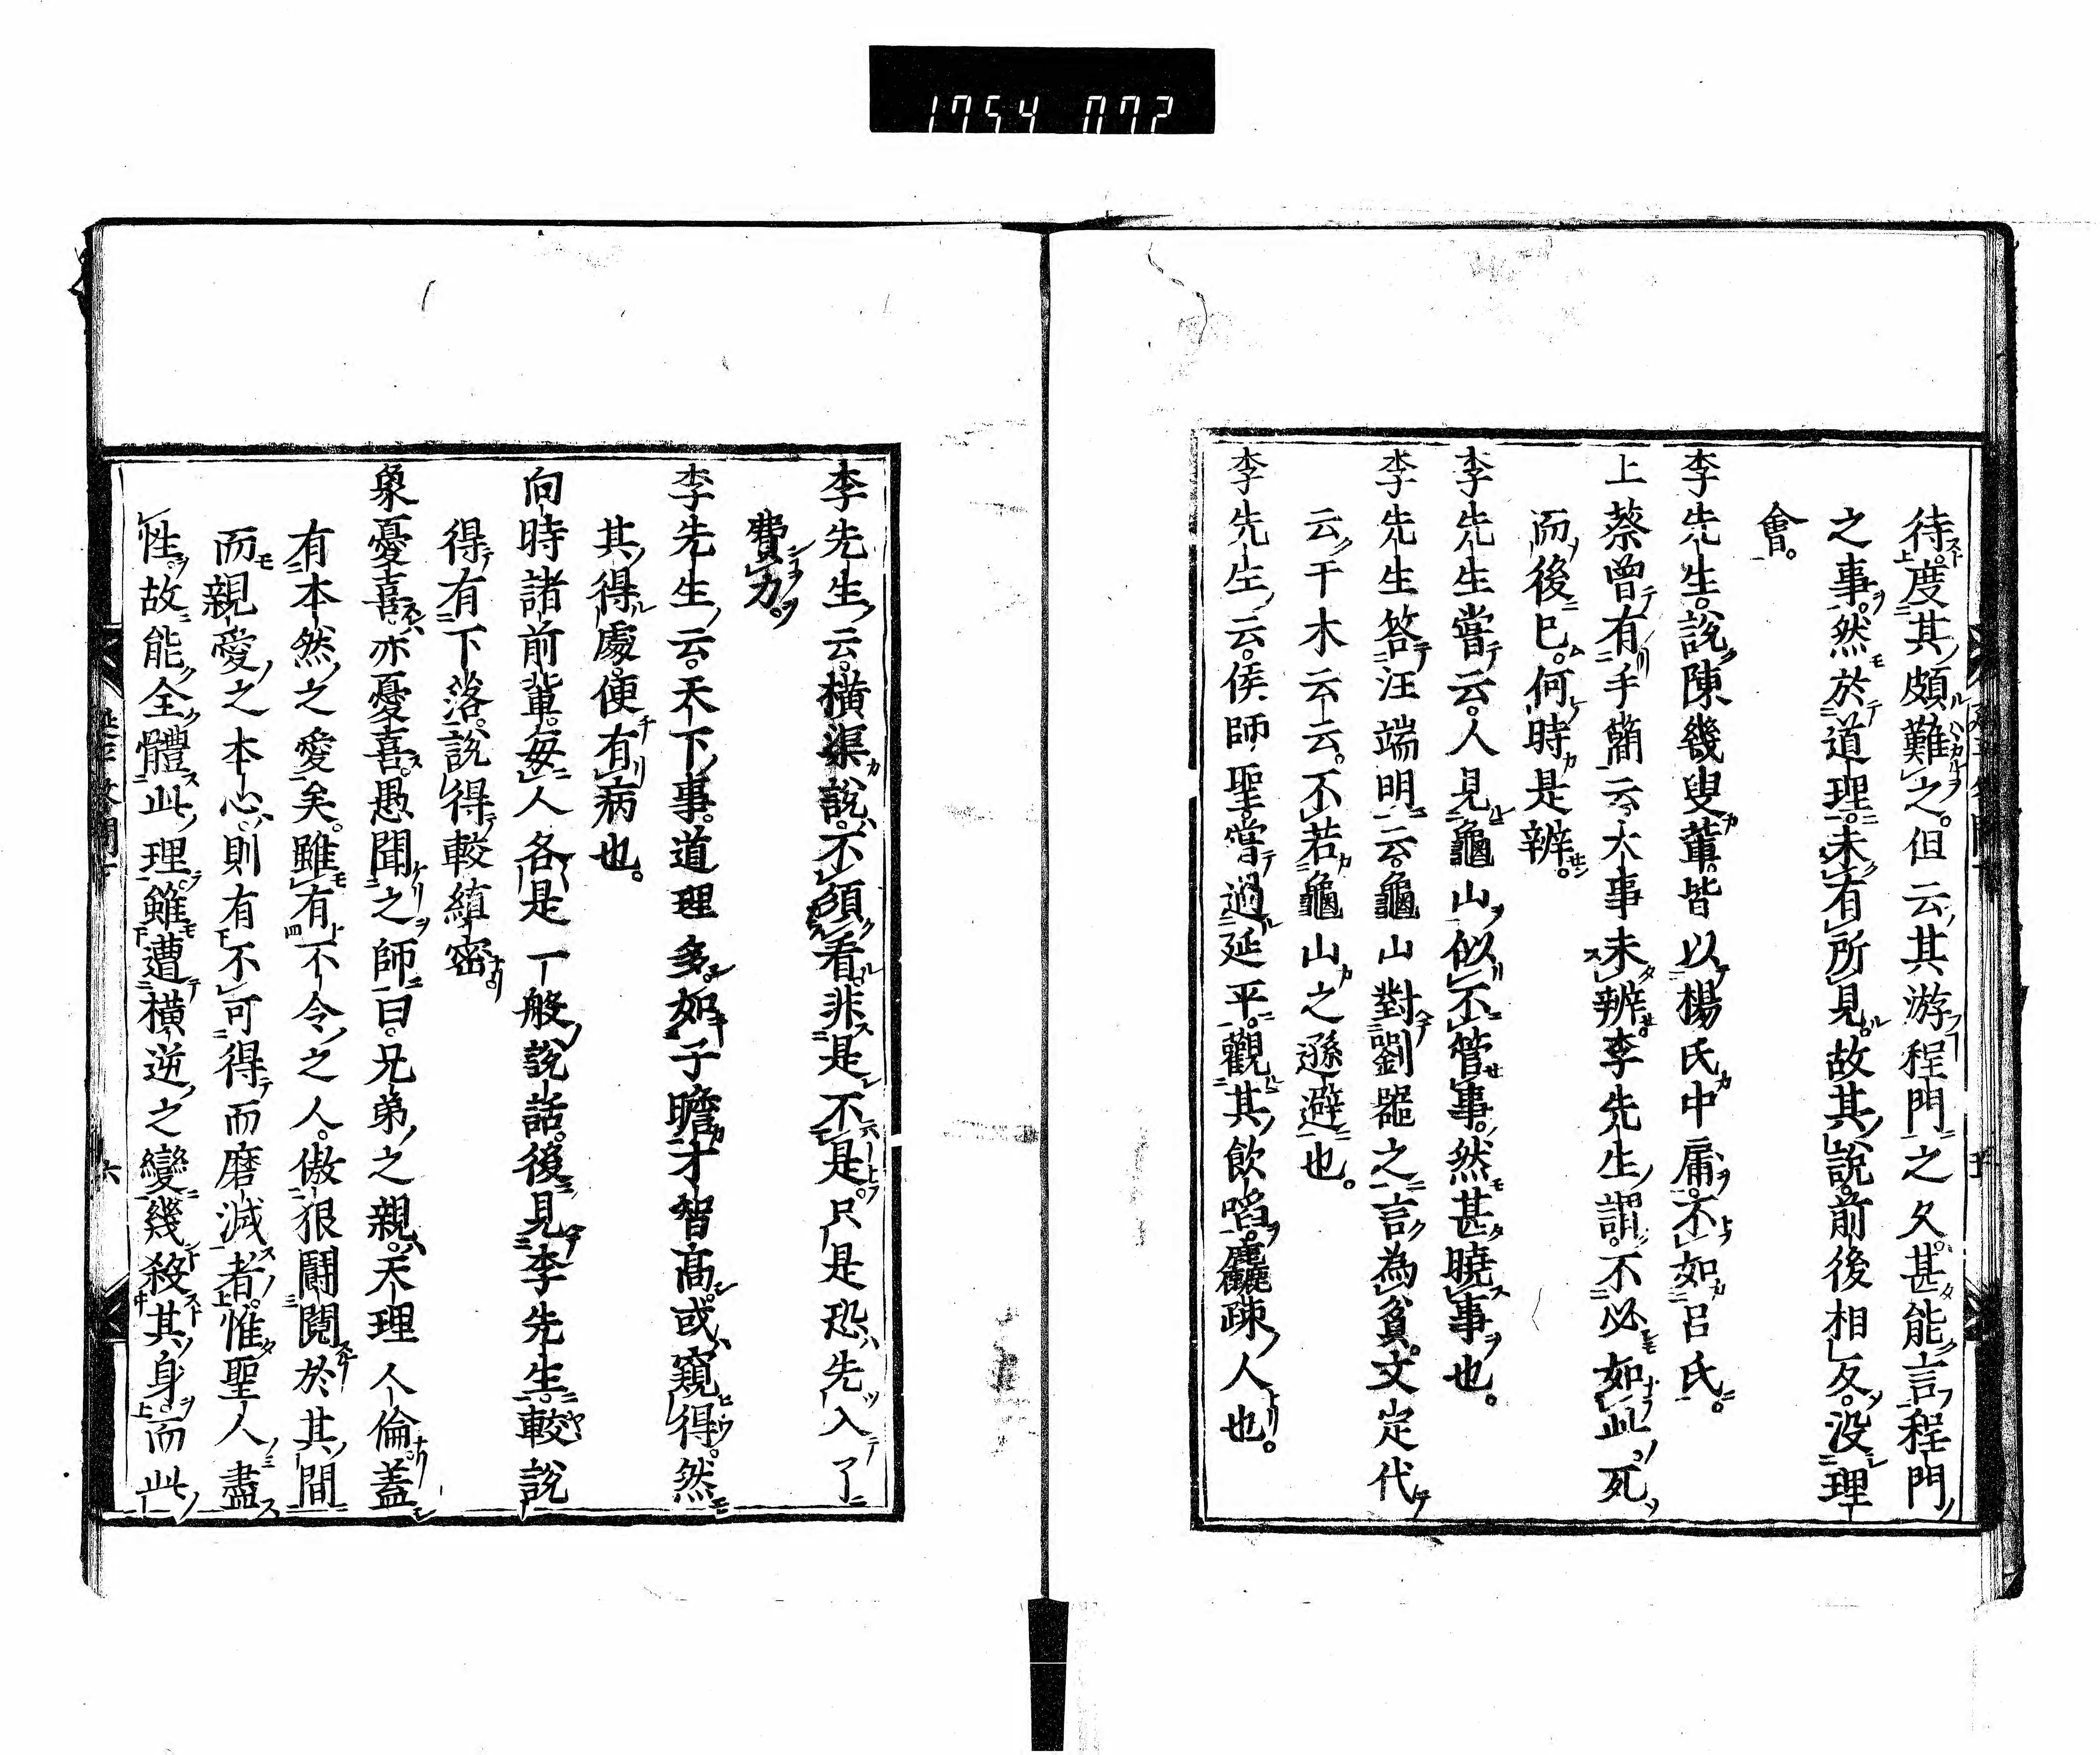 1754 072
待度其頗難之。但云其游程門之久。甚能言程門
之事。然於道理未有所見。故其說前後相反。没理
會。
李先生說陳幾叟輩皆以楊氏中庸不如呂氏。
上蔡曽有手簡云。大事未辨。李先生謂。不必如此。死
而後已。何時是辨。
李先生嘗云。人見龜山似不管事。然甚曉事也。
李先生答汪端明云。龜山對劉器之言。為貧。文定代
云。干木云云。不若龜山之遜避也。
李先生云。侯師聖嘗過延平。觀其飲啗。麤疎人也。
李先生云。橫渠說。不須看。非是不是。只是恐先入了
費力。
李先生云。天下事。道理多。如子瞻才智高。或窺得。然
其得處便有病也。
向時諸前輩。每人各是一般說話。後見李先生。較說
得有下落。說得較縝密。
象憂喜。亦憂喜。愚聞之師曰。兄弟之親。天理人倫蓋
有本然之愛矣。雖有不令之人。傲狠鬪鬩於其間
而親愛之本心。則有不可得而磨滅者。惟聖人盡
性。故能全體此理。雖遭橫逆之變幾殺其身而此
六